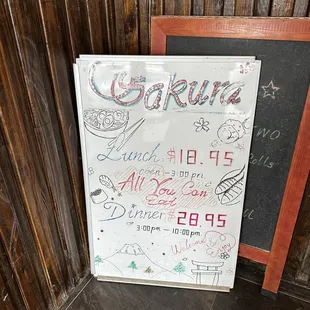 Sakura
Lunch $18.95
open - 3:00 pm.
All You Can
Eat
Dinner $28.95
3:00pm - 10:00pm
Welcome
Enjoy
Rolls